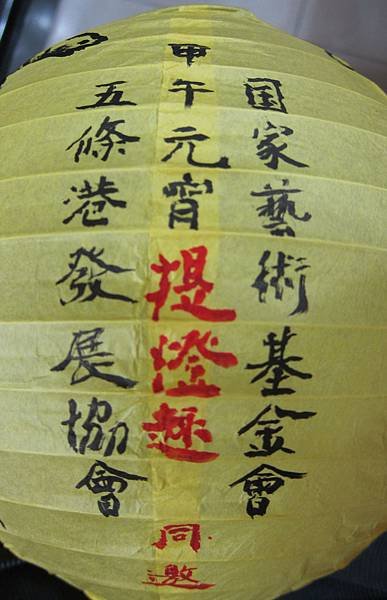 国家藝術基金會
甲午元宵提燈趣同邀
五條港發展協會